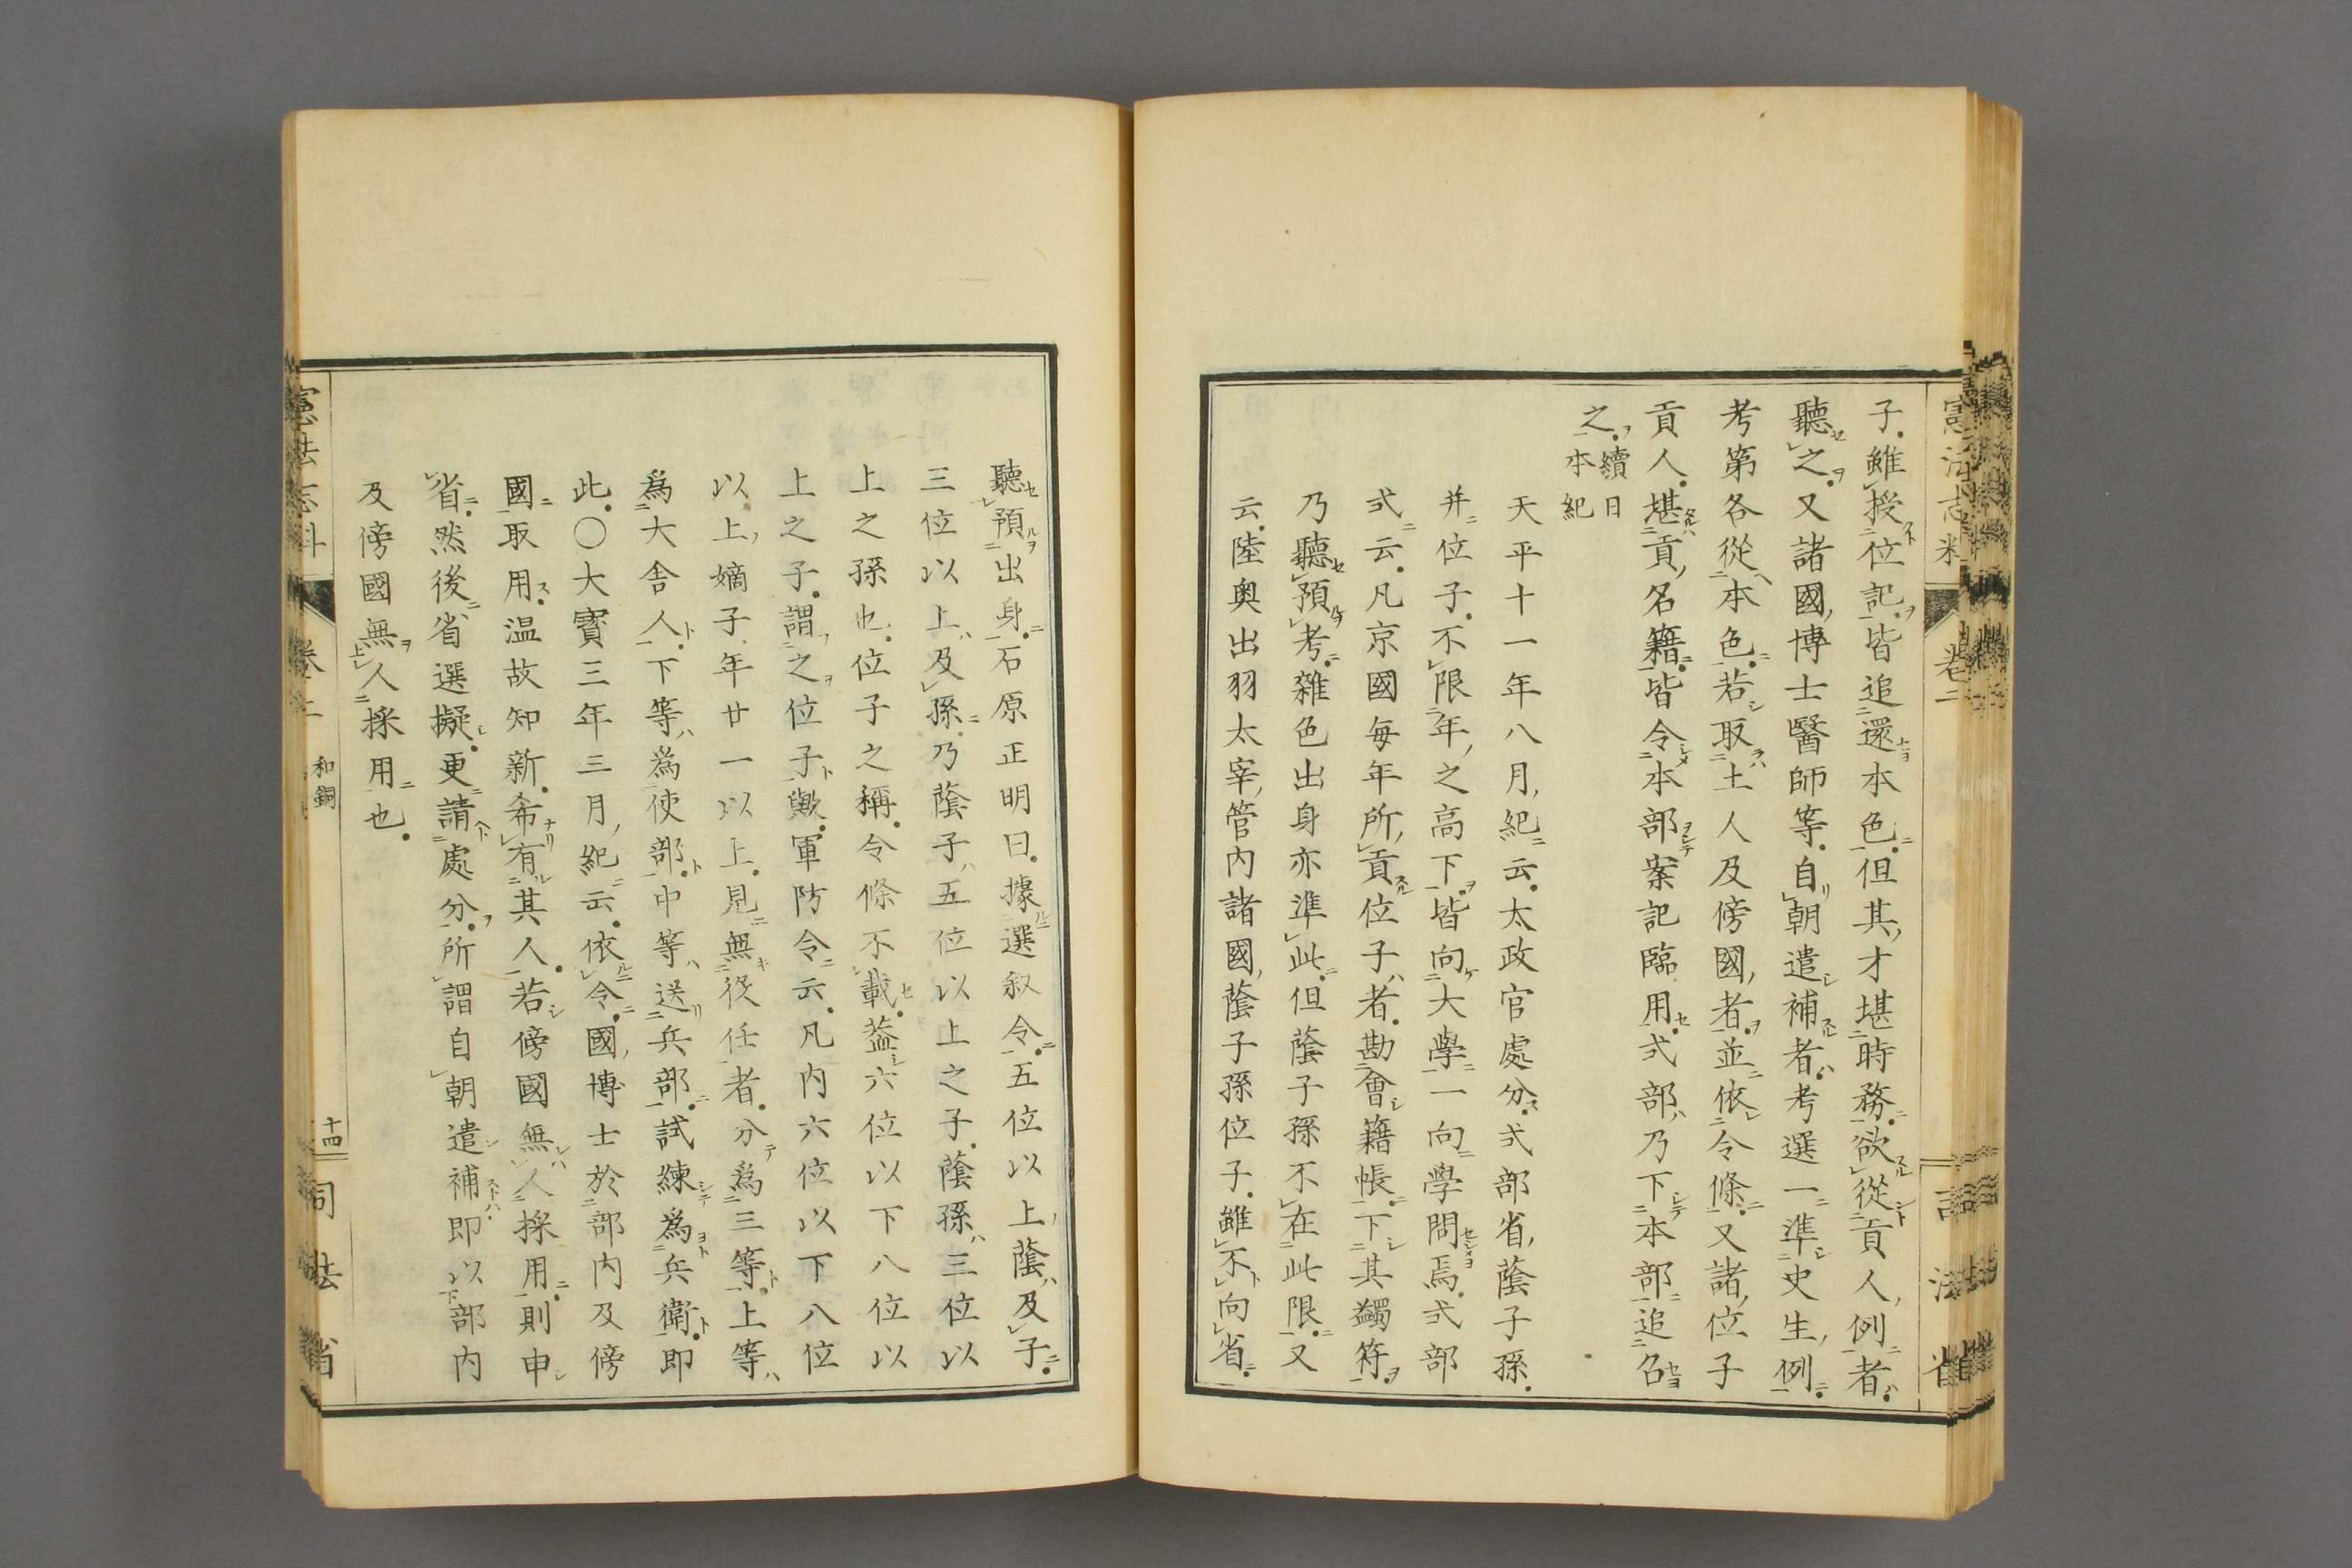 憲法志料
卷二
司法省
子。雖授位記。皆追還本色。但其才堪時務。欲從貢人例者。
聽之。又諸國博士醫師等。自朝遣補者。考選一準史生例。
考第各從本色。若取土人及傍國者。並依令條。又諸位子
貢人。堪貢名籍。皆令本部案記臨用。式部乃下本部追召
之。續日本紀
天平十一年八月紀云。太政官處分。式部省蔭子孫。
并位子。不限年之高下。皆向大學。一向學問焉。式部
式云。凡京國每年所貢位子者。勘會籍帳。下其蠲符。
乃聽預考。雜色出身亦準此。但蔭子孫不在此限。又
云。陸奧出羽太宰管內諸國蔭子孫位子。雖不向省。
聽預出身。石原正明曰。據選叙令。五位以上蔭及子。
三位以上及孫。乃蔭子五位以上之子。蔭孫三位以
上之孫也。位子之稱。令條不載。葢六位以下八位以
上之子。謂之位子歟。軍防令云。凡內六位以下八位
以上嫡子。年廿一以上。見無役任者。分爲三等。上等
爲大舍人。下等爲使部。中等送兵部。試練爲兵衛。即
此。〇大寶三年三月紀云。依令。國博士於部內及傍
國取用。温故知新。希有其人。若傍國無人採用。則申
省。然後省選擬。更請處分。所謂自朝遣補即以部內
及傍國無人採用也。
憲法志料
卷二
和銅
十四
司法省